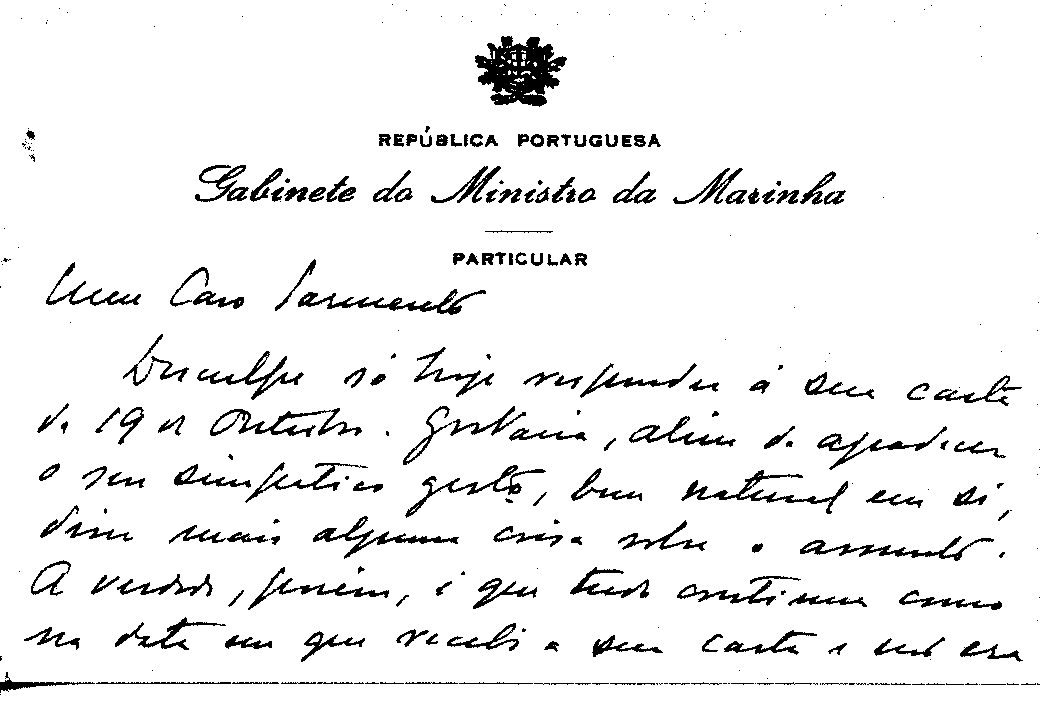 REPÚBLICA PORTUGUESA
Gabinete do Ministro da Marinha
PARTICULAR
Meu Caro Sarmento
Desculpe só hoje responder à sua carta
de 19 de Outubro. Gostaria, além de agradecer
o seu simpático gesto, bem natural em si,
dizer mais alguma coisa sobre o assunto.
A verdade, porém, é que tudo continua como
na data em que recebi a sua carta e